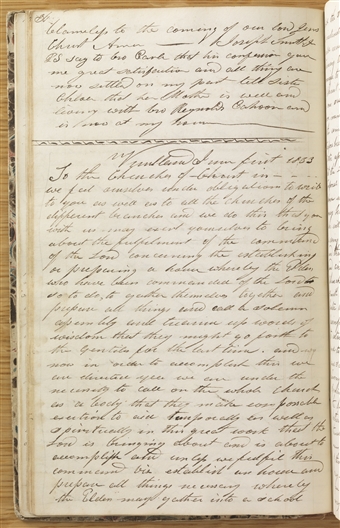 36
blameless to the coming of our Lord Jesus
Christ Amen — Joseph Smith Jr
PS say to bro Carter that his confession gave
me great satisfaction and all things are
now settled on my part tell sister
Chloe that her Mother is well and
living with bro Reynolds Cahoon and
is now at my house
Kirtland June first 1833
To the Churches of Christ in — — —
we feel ourselves under obligation to write
to you as well as to all the Churches of the
different branches and we do this that you
with us may exert yourselves to bring
about the fulfilment of the command
of the Lord concerning the establishing
or prepairing a house whereby the Elders
who have been commanded of the Lord
so to do, to gather themselves together and
prepare all things and call a solemn
assembly and treasure up words of
wisdom that they might go forth to
the Gentiles for the last time. and
now in order to accomplish this we
are under the
necessity to call on the whole Church
as a body that they make every possible
exertion to aid temporally as well as
spiritually in this great work that the
Lord is bringing about and is about to
accomplish and unless we fulfil this
command viz establish an house and
prepare all things necessary whereby
the Elders may gather into a school